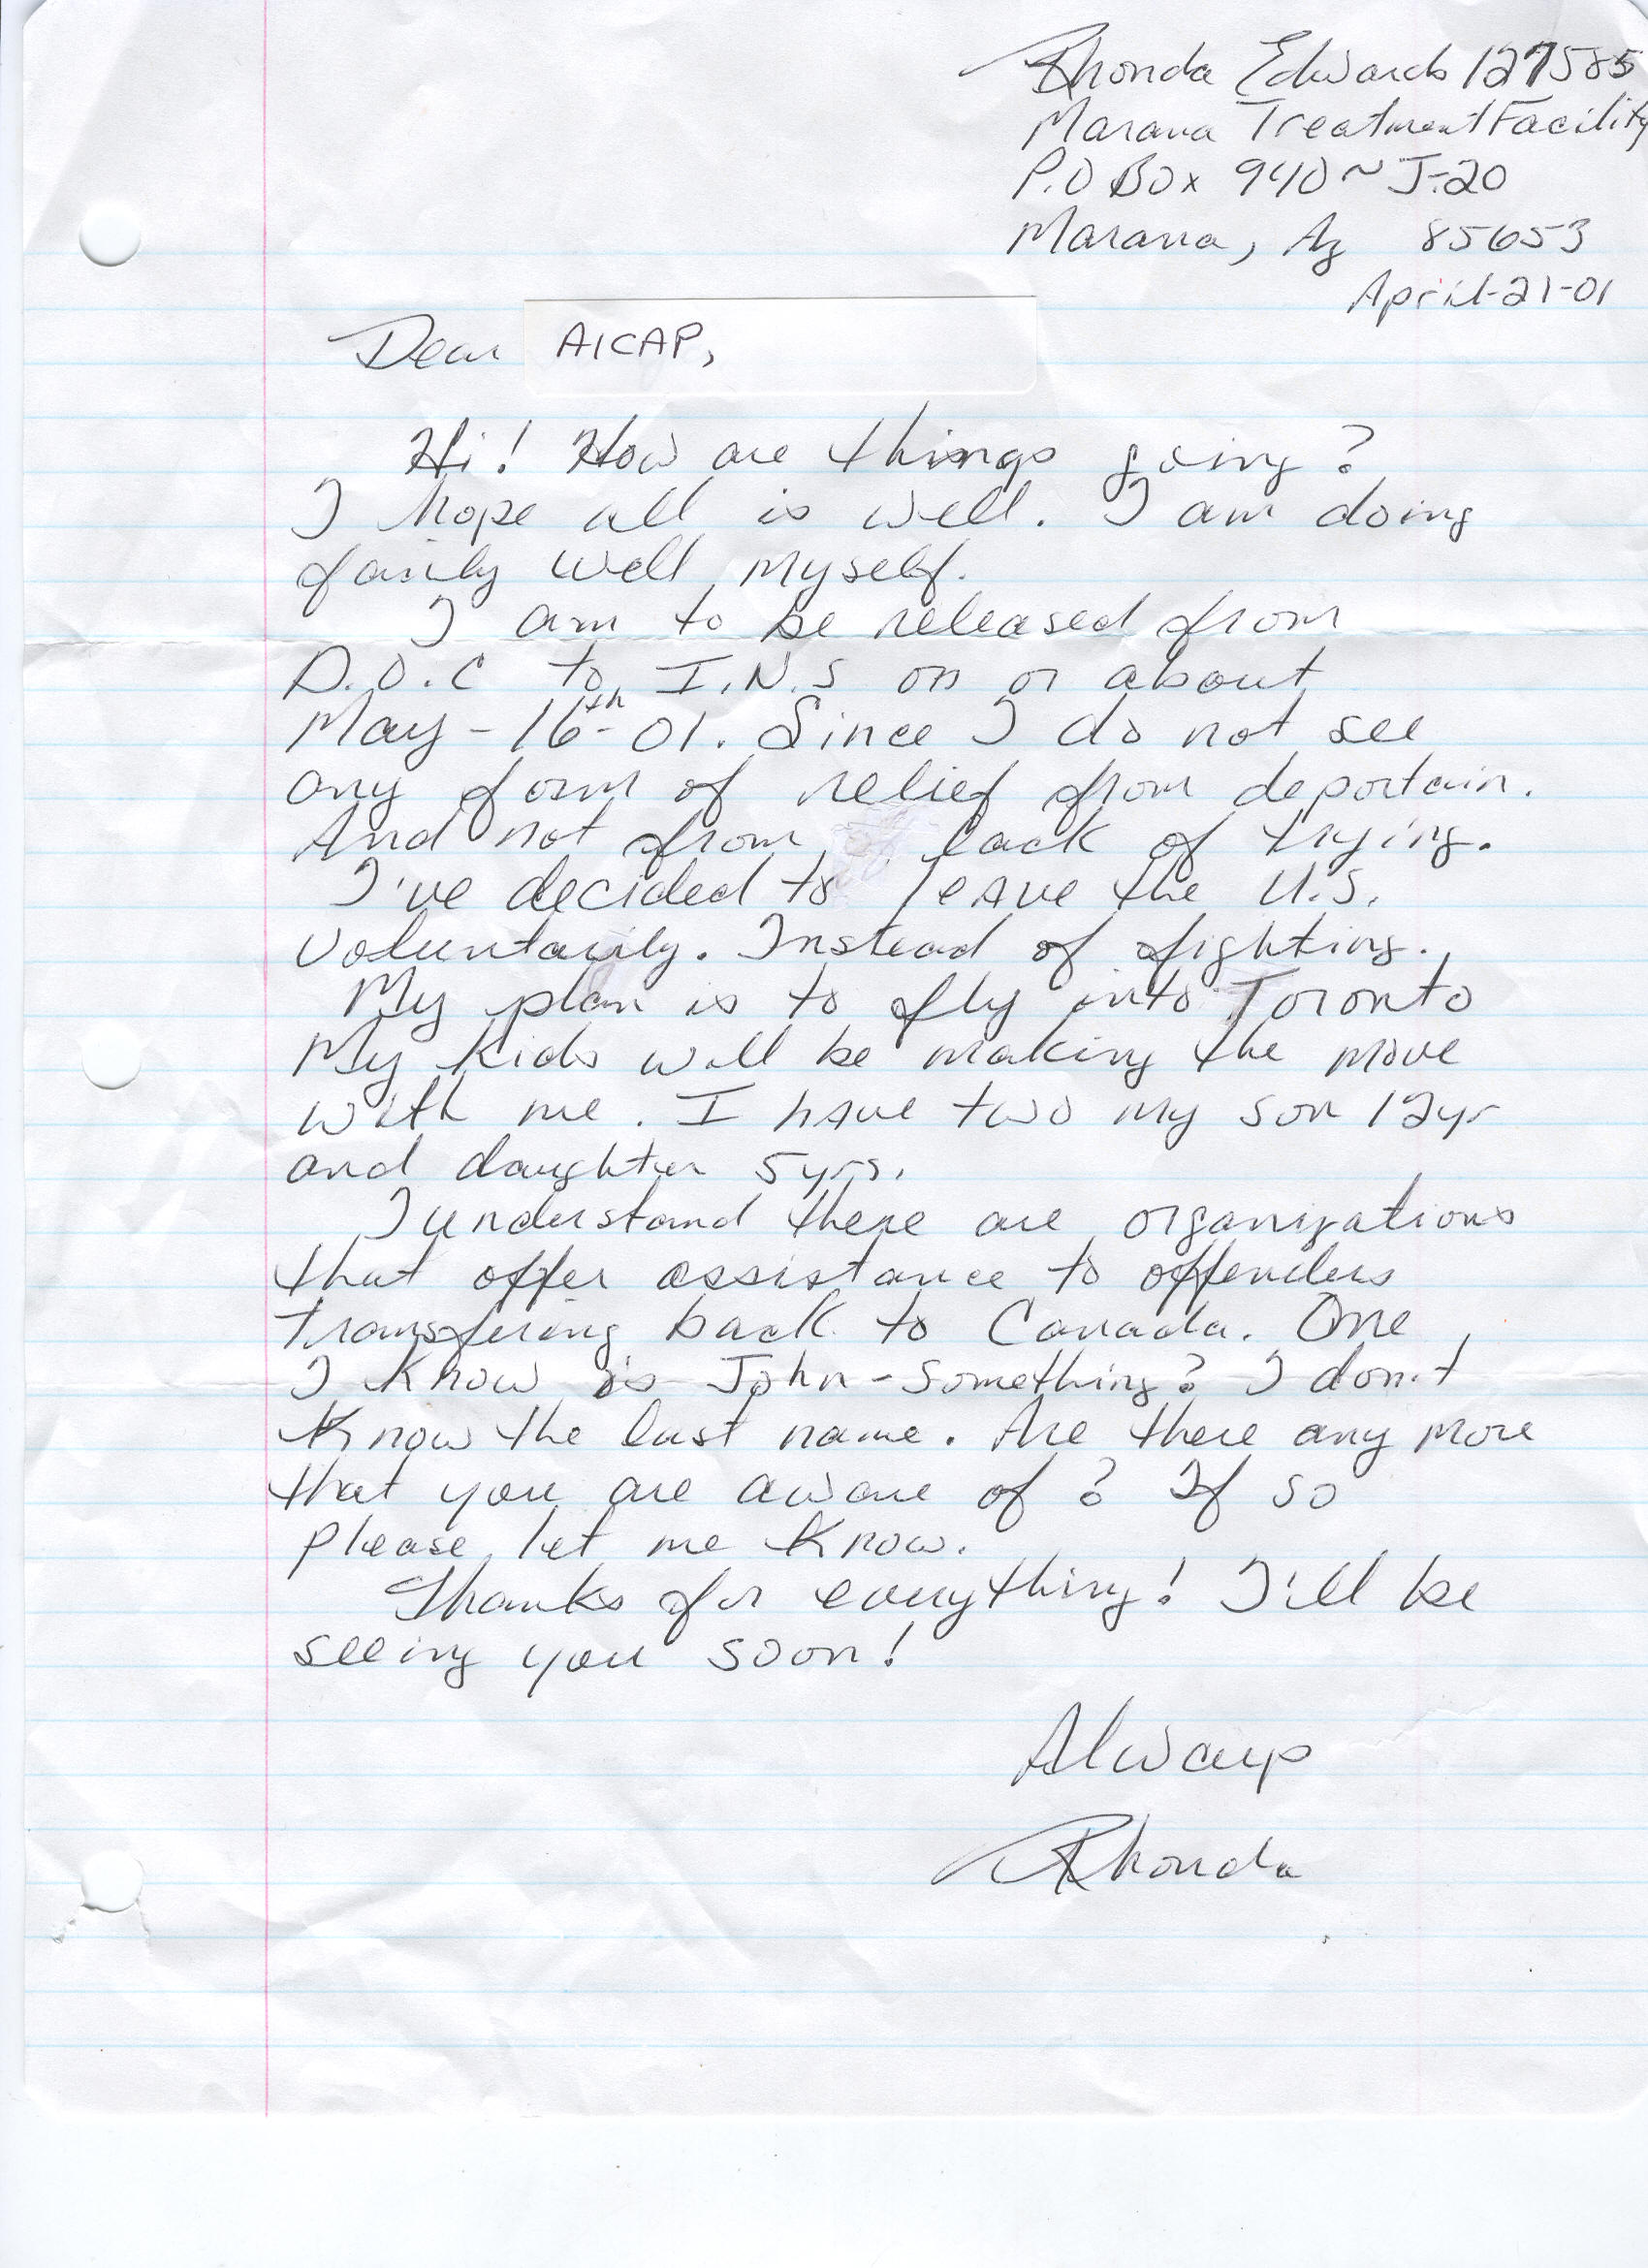 Rhonda Edwards 127585
Marana Treatment Facility
P.O Box 940 ~ J-20
Marana, Az 85653
April-21-01
Dear AICAP,
Hi! How are things going?
I hope all is well. I am doing
fairly well myself.
I am to be released from
D.O.C to I.N.S on or about
May-16th-01. Since I do not see
any form of relief from deportain.
And not from lack of trying.
I've decided to leave the U.S.
voluntarily. Instead of fighting.
My plan is to fly into Toronto
My kids will be making the move
with me. I have two my son 12yr
and daughter 5yrs.
I understand there are organizations
that offer assistance to offenders
transfering back to Canada. One
I know is John-Something? I don't
know the last name. Are there any more
that you are aware of? If so
please let me know.
Thanks for everything! I'll be
seeing you soon!
Always
Rhonda